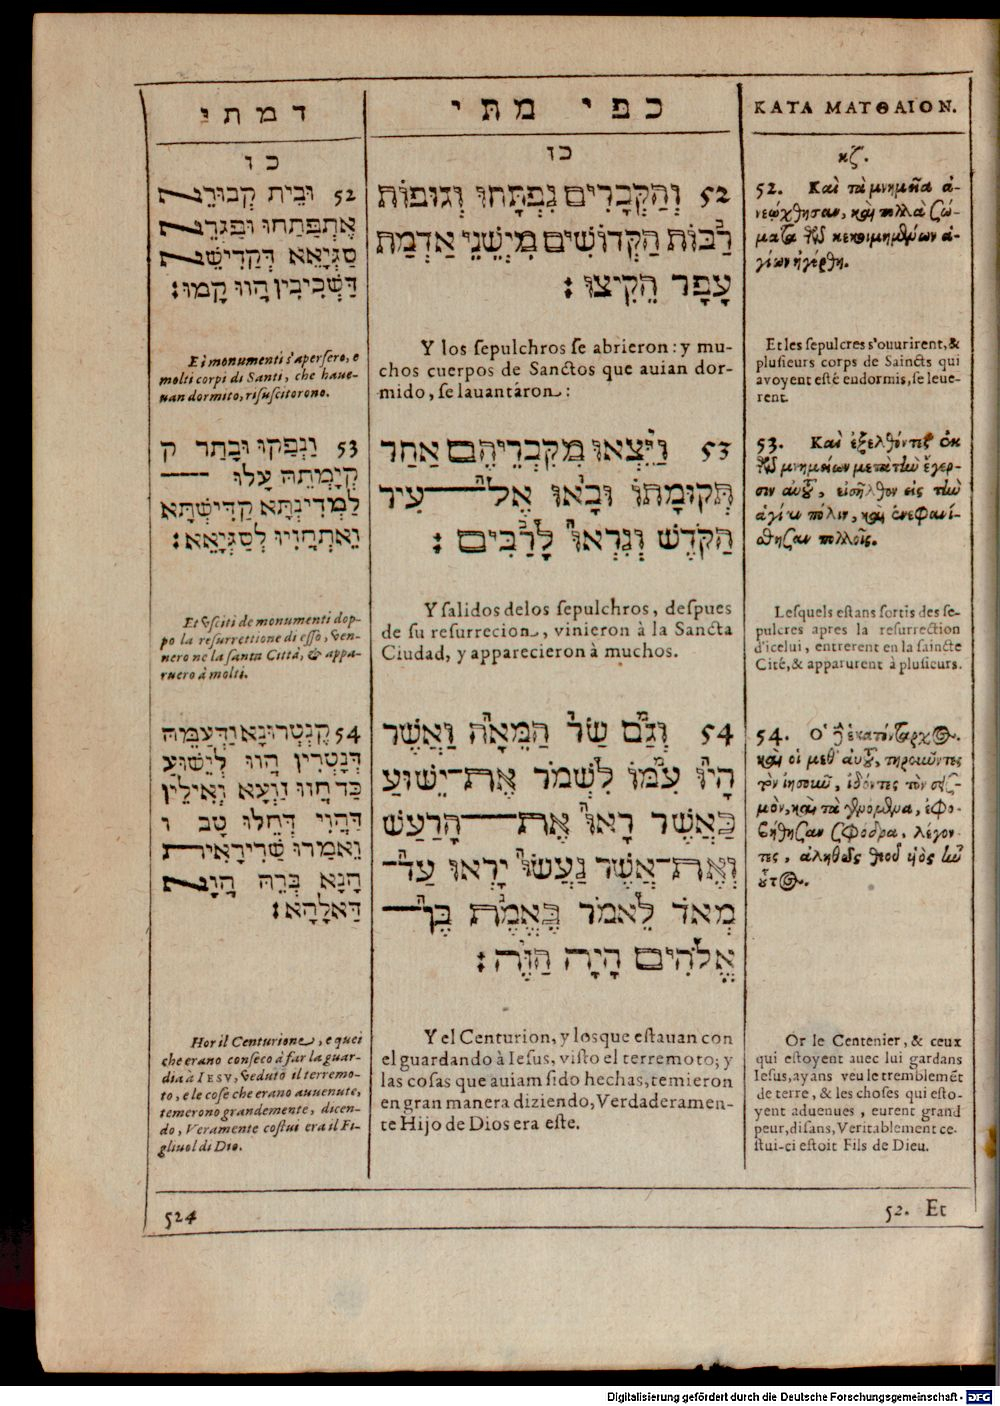 דמתי
כו
52 וּבֵית קְבוּרֵא
אֶתְפַּתַחוּ וּפַגרֵא
סַגִּיָאֵא דְּקַדִישֵׁא
דַּשְׁכִיבִין הֲווֹ קָמוּ:
E i monumenti s'aperſero, e
molti corpi di Santi, che haue-
uan dormito, riſuſcitorono.
53 וַנְפַקוּ וּבָתַר ק
קְיָמְתֵהּ עָלוּ
לַמְדִינְתָּא קַדִּישְׁתָּא
וֵאתְחֲזִיו לְסַגִּיָאֵא:
Et vſciti de monumenti dop-
po la reſurrettione di eſſo, ven-
nero ne la ſanta Città, & appa-
ruero à molti.
54 קֶנְטְרוּנָא וַדְעַמֵּהּ
דְּנָטְרִין הֲווֹ לְיֵשׁוּע
כַּד חֲזוֹ זַוְעָא וְאַילֵין
דַּהֲוַי דְּחֵלוּ טָב ו
וֵאמַרוּ שַׁרִירָאיִת
הָנָא בְּרֵהּ הֲוָא
דַּאלָהָא:
Hor il Centurione, e quei
che erano conſeco à far la guar-
dia à IESV, veduto il terremo-
to, e le coſe che erano auuenute,
temerono grandemente, dicen-
do, Veramente coſtui era il Fi-
gliuol di Dio.
כפי מתי
כז
52 וְהַקְּבָרִים נִפְתָּחוּ וְגוּפוֹת
רַבּוֹת הַקְּדוֹשִׁים מִיְשֵׁנֵי אַדְמַת
עָפָר הֵקִיצוּ:
Y los ſepulchros ſe abrieron: y mu-
chos cuerpos de Sanctos que auian dor-
mido, ſe lauantáron:
53 וַיֵּצְאוּ מִקִּבְרֵיהֶם אַחַר
תְּקוּמָתוֹ וּבָאוּ אֶל־עִיר
הַקֹּדֶשׁ וְנִרְאוּ לָרַבִּים:
Y ſalidos delos ſepulchros, deſpues
de ſu reſurrecion, vinieron à la Sancta
Ciudad, y apparecieron à muchos.
54 וְגַם שַׂר הַמֵּאָה וַאֲשֶׁר
הָיוּ עִמּוֹ לִשְׁמֹר אֶת־יֵשׁוּעַ
כַּאֲשֶׁר רָאוּ אֶת־הָרַעַשׁ
וְאֶת־אֲשֶׁר נַעֲשׂוּ יָרְאוּ עַד־
מְאֹד לֵאמֹר בֶּאֱמֶת בֶּן־
אֱלֹהִים הָיָה הַזֶּה:
Y el Centurion, y los que eſtauan con
el guardando à Ieſus, viſto el terremoto; y
las coſas que auiam ſido hechas, temieron
en gran manera diziendo, Verdaderamen-
te Hijo de Dios era eſte.
ΚΑΤΑ ΜΑΤΘΑΙΟΝ.
κζ.
52. Καὶ τὰ μνημεῖα ἀ-
νεῴχθησαν, καὶ πολλὰ σώ-
ματα τῶν κεκοιμημένων ἁ-
γίων ἠγέρθη.
Et les ſepulcres s'ouurirent, &
pluſieurs corps de Saincts qui
avoyent eſté endormis, ſe leue-
rent.
53. Καὶ ἐξελθόντες ἐκ
τῶν μνημείων μετὰ τὴν ἔγερ-
σιν αὐτοῦ, εἰσῆλθον εἰς τὴν
ἁγίαν πόλιν, καὶ ἐνεφανί-
σθησαν πολλοῖς.
Leſquels eſtans ſortis des ſe-
pulcres apres la reſurrection
d'icelui, entrerent en la ſaincte
Cité, & apparurent à pluſieurs.
54. Ὁ δὲ ἑκατόνταρχος.
καὶ οἱ μετ' αὐτοῦ, τηροῦντες
τὸν ἰησοῦν, ἰδόντες τὸν σεισ-
μὸν, καὶ τὰ γενόμενα, ἐφο-
βήθησαν σφόδρα, λέγον-
τες, ἀληθῶς θεοῦ υἱὸς ἦν
οὗτος.
Or le Centenier, & ceux
qui eſtoyent auec lui gardans
Ieſus, ayans veu le tremblemẽt
de terre, & les choſes qui eſto-
yent aduenues, eurent grand
peur, diſans, Veritablement ce-
ſtui-ci eſtoit Fils de Dieu.
524
52. Et
Digitalisierung gefördert durch die Deutsche Forschungsgemeinschaft - DFG